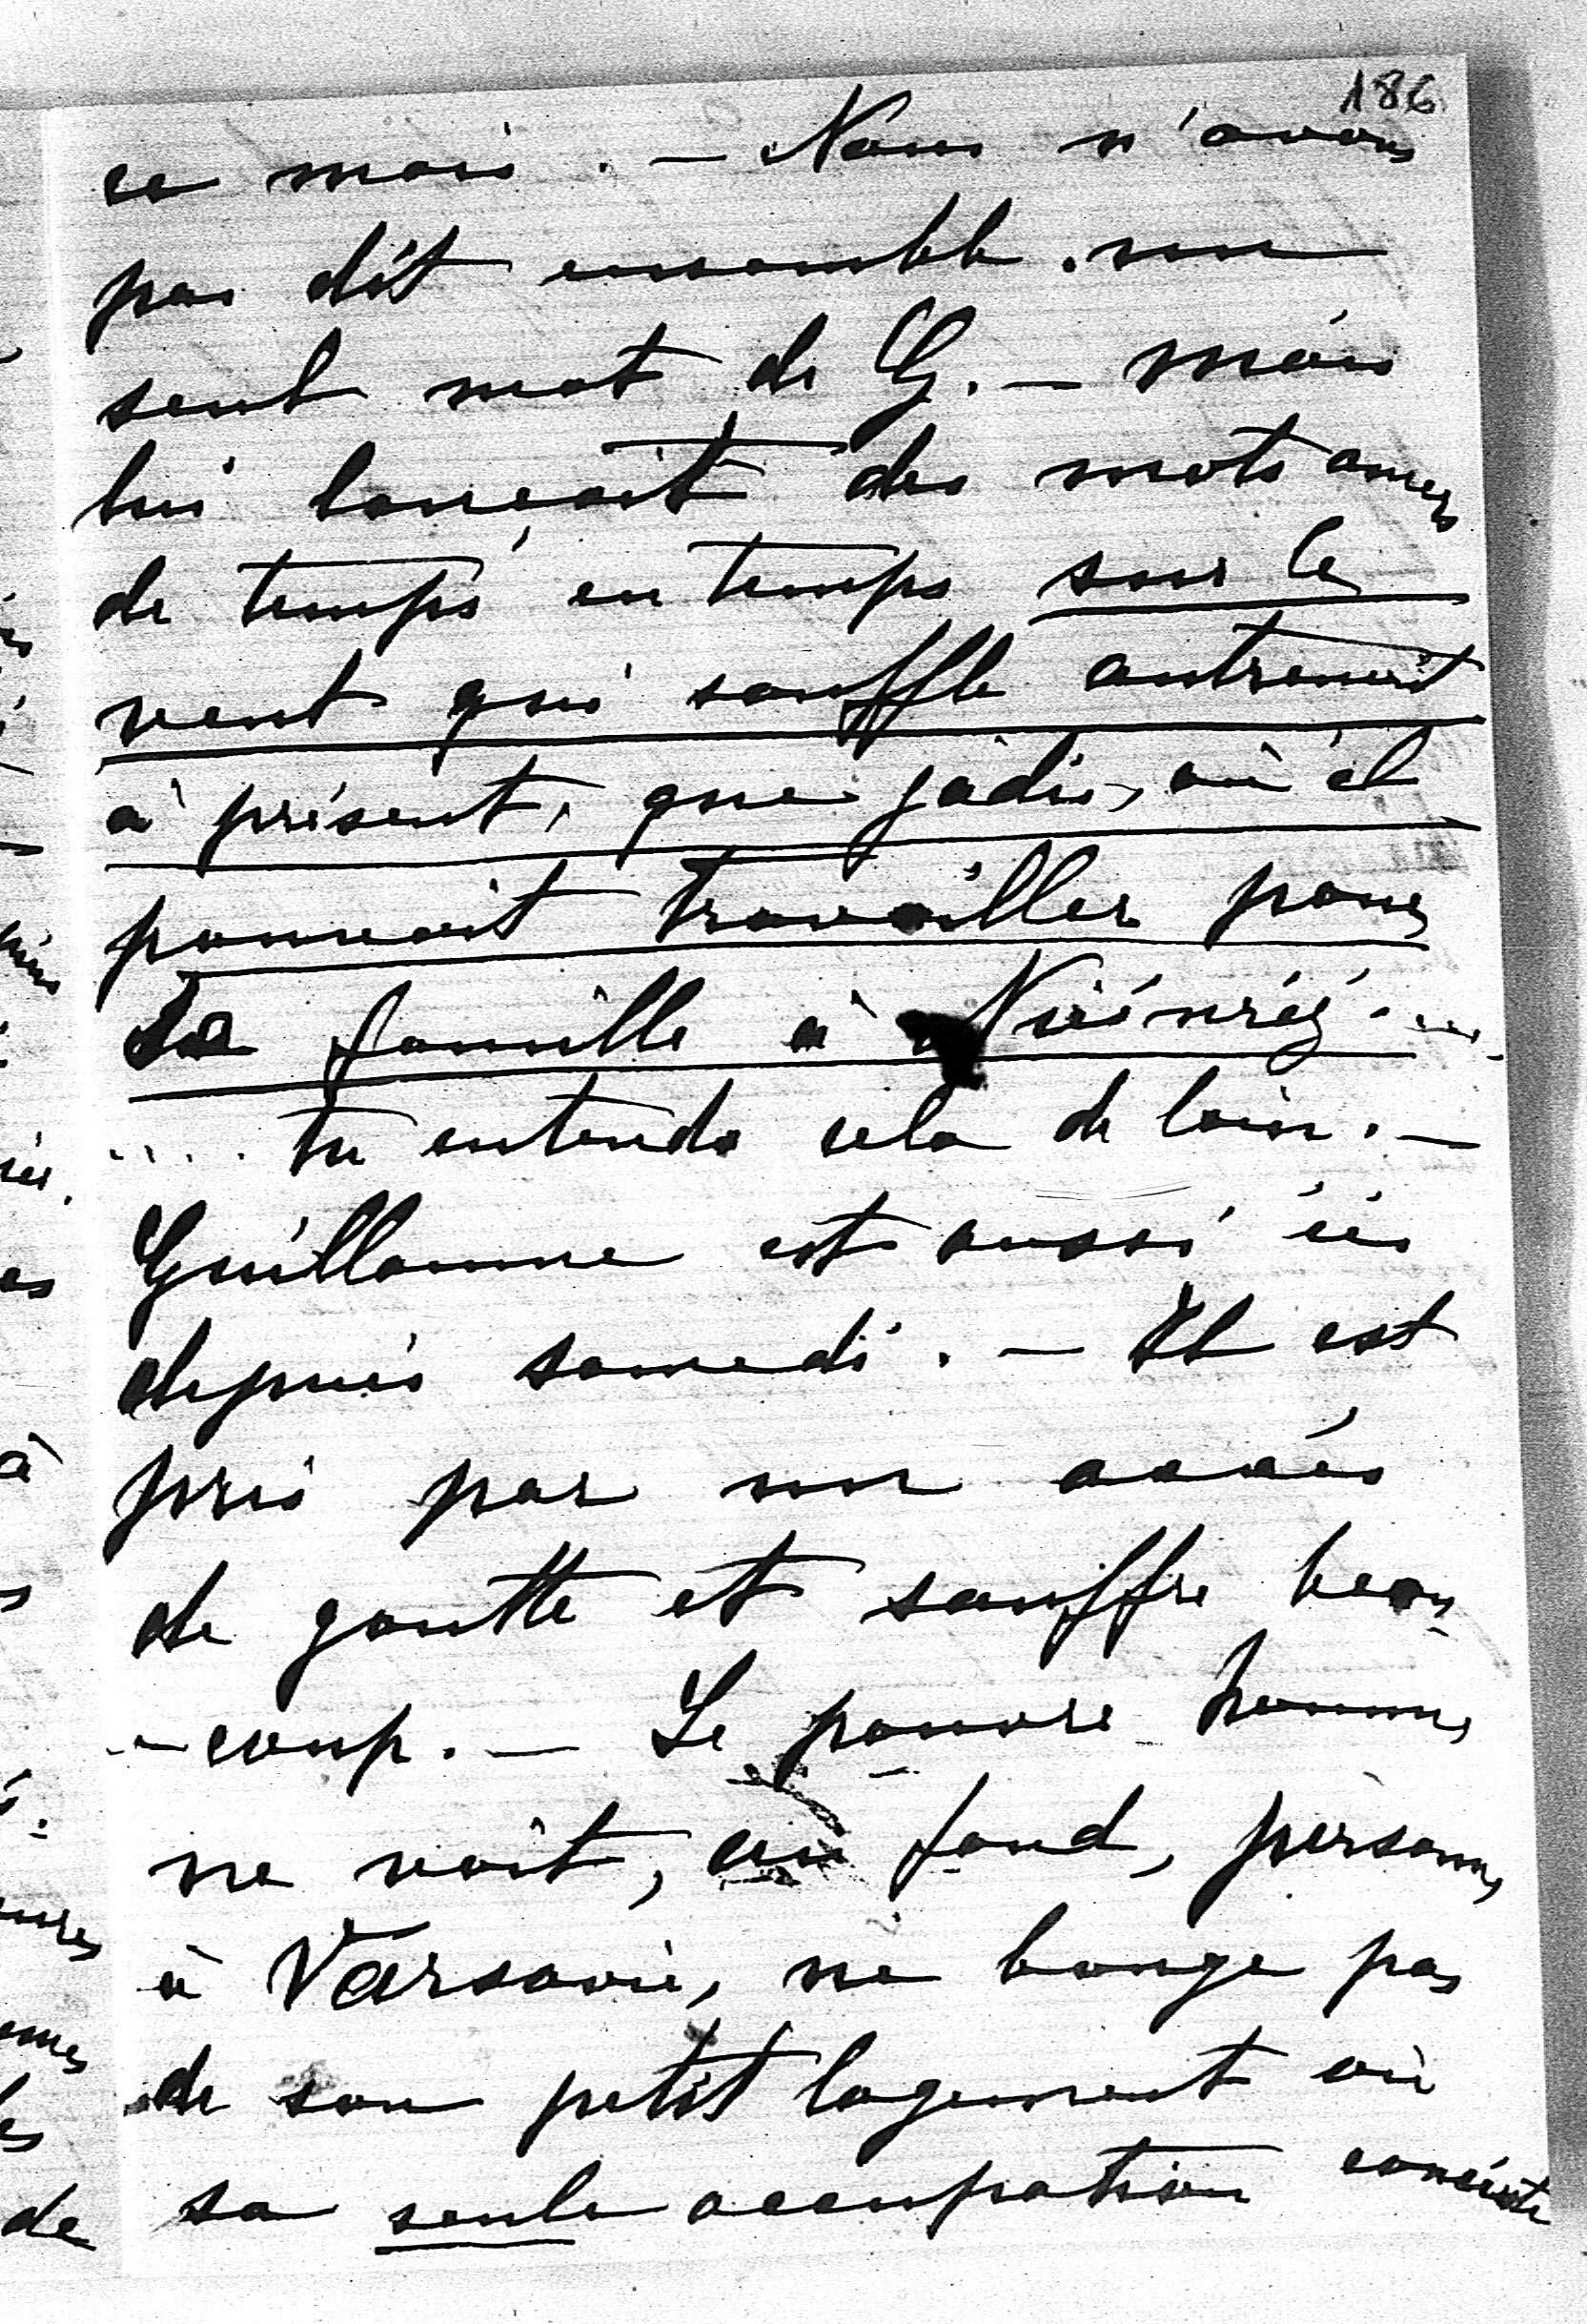 186
ce mois. — Nous n'avons
pas dit ensemble un
seul mot de G. — mais
lui lançait des mots amers
de temps en temps sur le
vent qui souffle autrement
à présent, que jadis, où il
pouvait travailler pour
sa famille à
.... tu entends cela de loin. —
Guillaume est aussi ici
depuis samedi. — Il est
pris par un accès
de goutte et souffre beau-
-coup. — Le pauvre homme
ne voit, au fond, personne
à Varsovie, ne bouge pas
de son petit logement où
sa seule occupation consiste